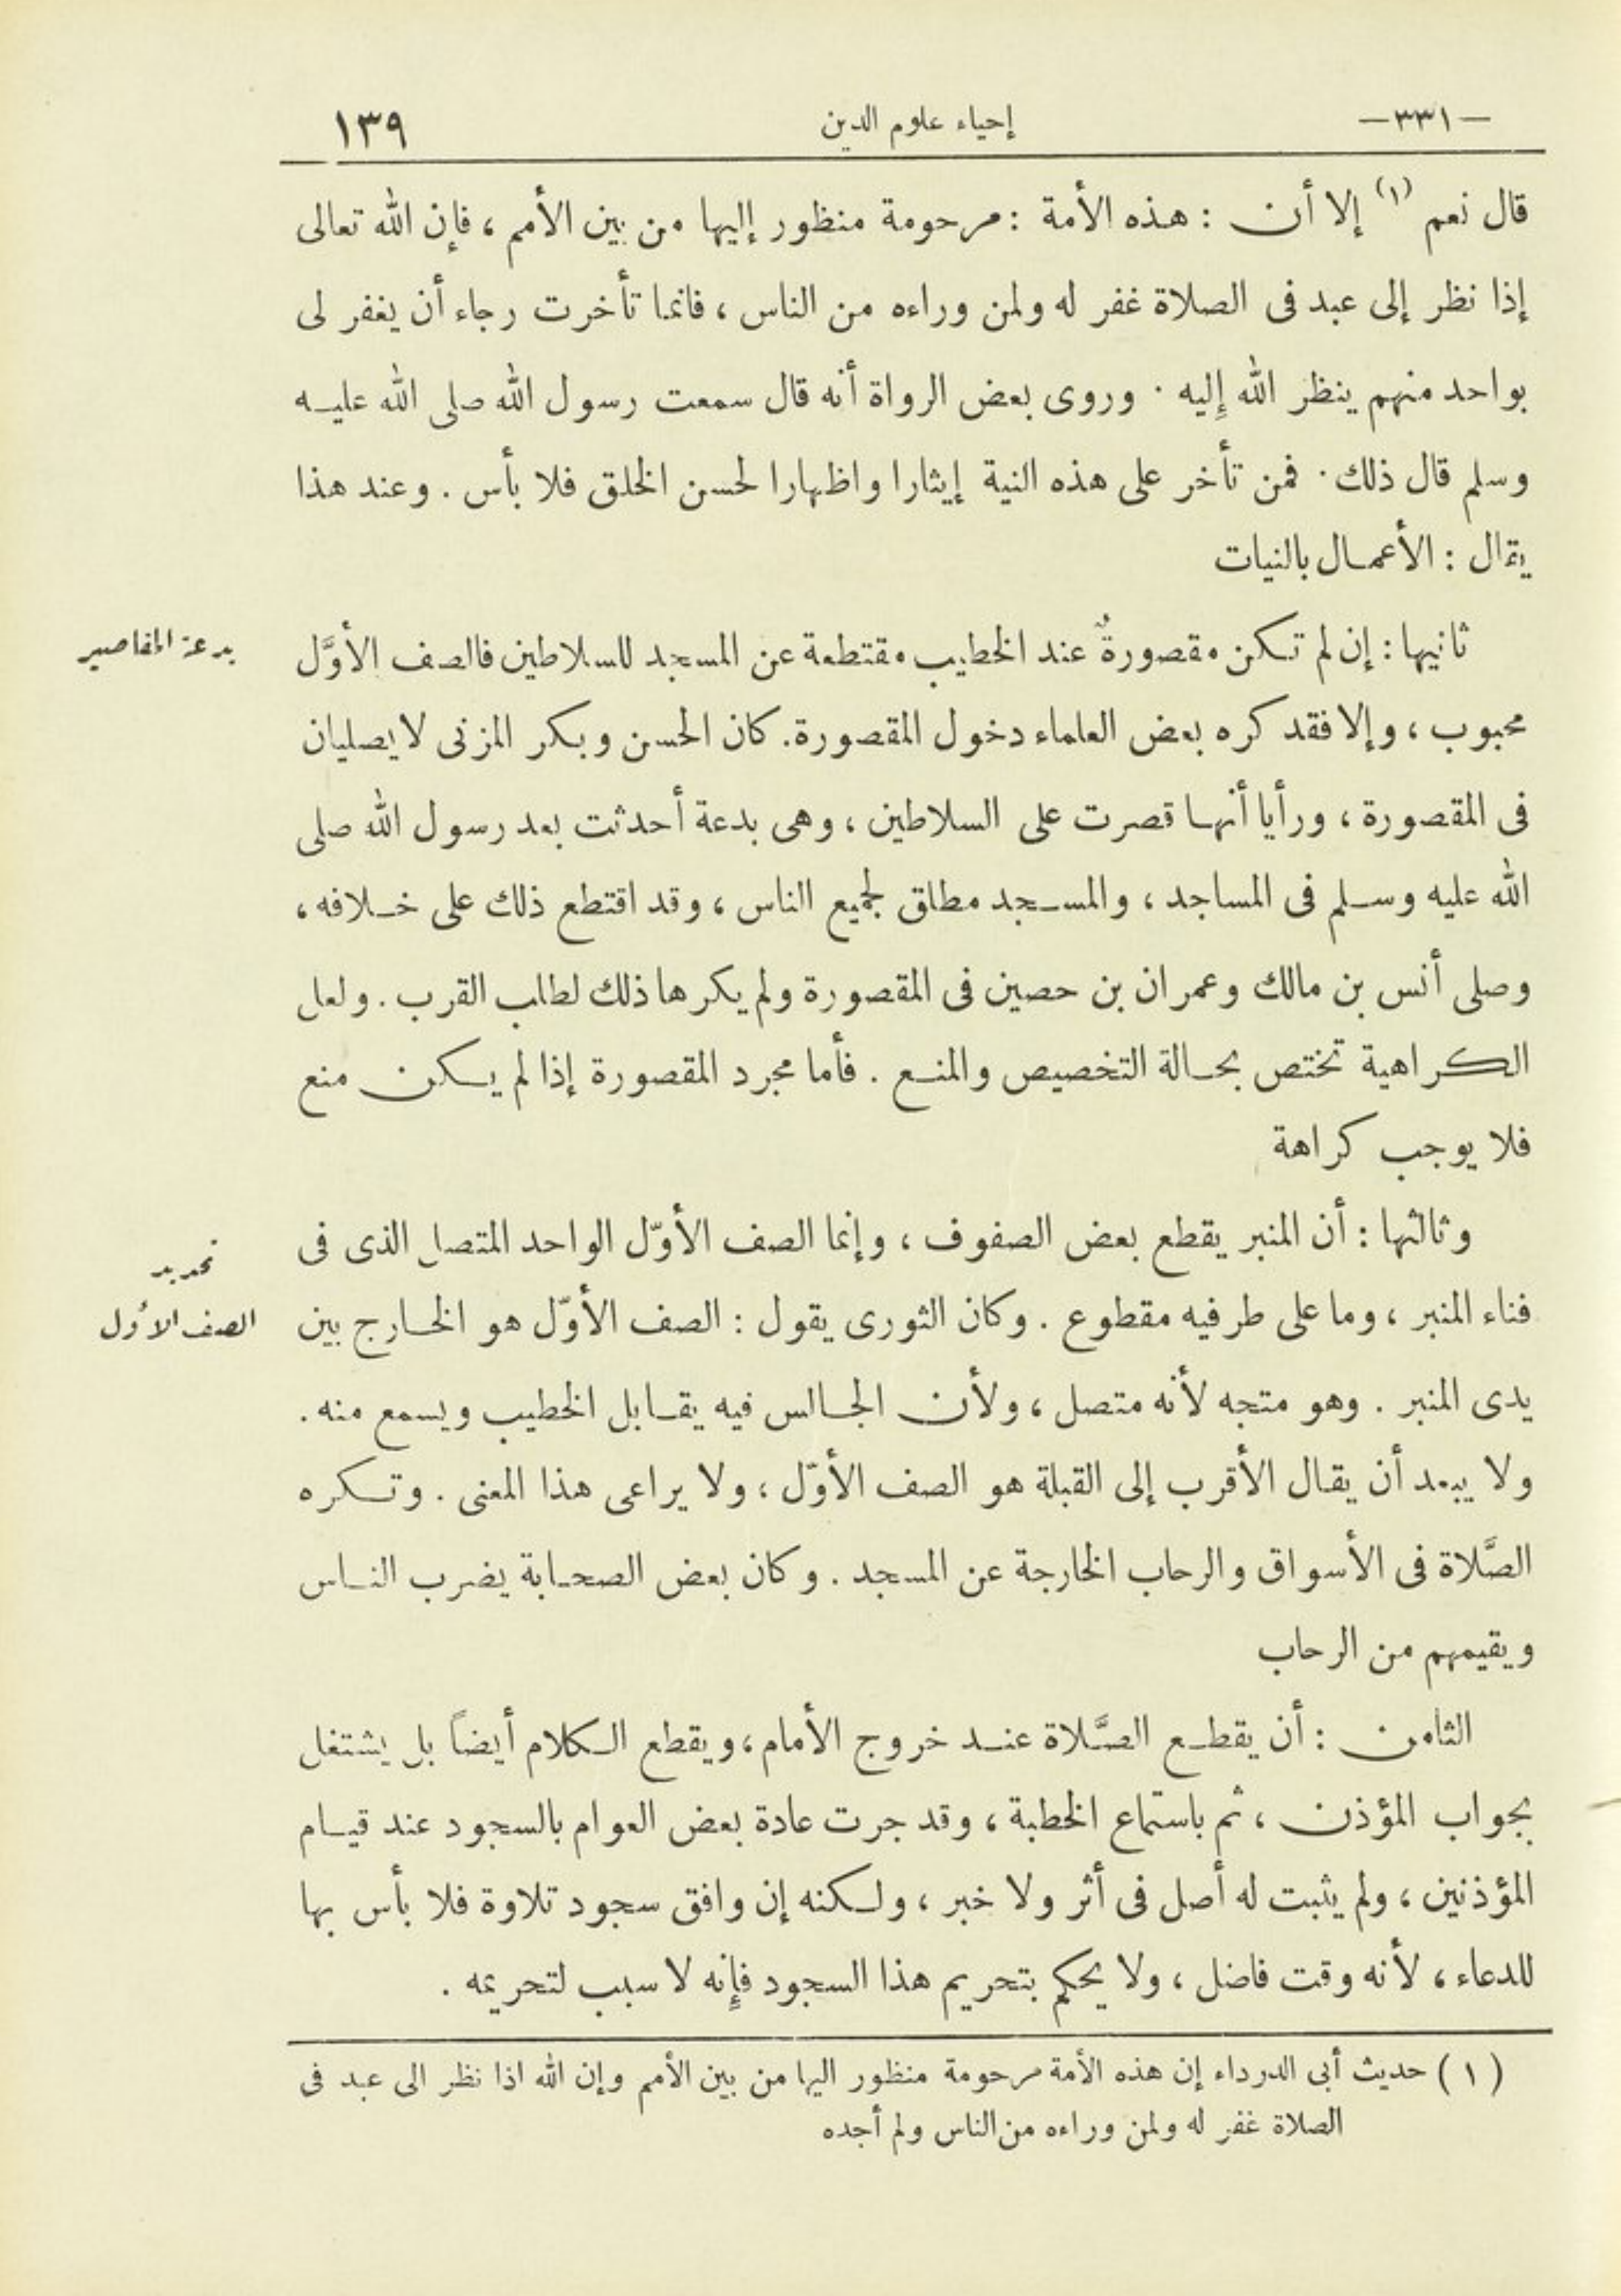 -٣٣١-
إحياء علوم الدين
١٣٩
قال نعم (١) إلا أن : هذه الأمة : مرحومة منظور إليها من بين الأمم ، فإن الله تعالى
إذا نظر إلى عبد فى الصلاة غفر له ولمن وراءه من الناس ، فانما تأخرت رجاء أن يغفر لى
بواحد منهم ينظر الله إليه . وروى بعض الرواة أنه قال سمعت رسول الله صلى الله عليه
وسلم قال ذلك . فمن تأخر على هذه النية إيثارا واظهارا لحسن الخلق فلا بأس . وعند هذا
يقال : الأعمال بالنيات
ثانيها : إن لم تكن مقصورةٌ عند الخطيب مقتطعة عن المسجد للسلاطين فالصف الأوَّل
بدعة المقاصير
محبوب ، وإلا فقد كره بعض العلماء دخول المقصورة . كان الحسن وبكر المزنى لا يصليان
فى المقصورة ، ورأيا أنها قصرت على السلاطين ، وهى بدعة أحدثت بعد رسول الله صلى
الله عليه وسلم فى المساجد ، والمسجد مطلق لجميع الناس ، وقد اقتطع ذلك على خلافه ،
وصلى أنس بن مالك وعمران بن حصين فى المقصورة ولم يكرها ذلك لطلب القرب . ولعل
الكراهية تختص بحالة التخصيص والمنع . فأما مجرد المقصورة إذا لم يكن منع
فلا يوجب كراهة
وثالثها : أن المنبر يقطع بعض الصفوف ، وإنما الصف الأوّل الواحد المتصل الذى فى
تحديد
الصف الأول
فناء المنبر ، وما على طرفيه مقطوع . وكان الثورى يقول : الصف الأوّل هو الخارج بين
يدى المنبر . وهو متجه لأنه متصل ، ولأن الجالس فيه يقابل الخطيب ويسمع منه .
ولا يبعد أن يقال الأقرب إلى القبلة هو الصف الأوّل ، ولا يراعى هذا المعنى . وتكره
الصَّلاة فى الأسواق والرحاب الخارجة عن المسجد . وكان بعض الصحابة يضرب الناس
ويقيمهم من الرحاب
الثامن : أن يقطع الصَّلاة عند خروج الأمام ، ويقطع الكلام أيضاً بل يشتغل
بجواب المؤذن ، ثم باستماع الخطبة ، وقد جرت عادة بعض العوام بالسجود عند قيام
المؤذنين ، ولم يثبت له أصل فى أثر ولا خبر ، ولكنه إن وافق سجود تلاوة فلا بأس بها
للدعاء ، لأنه وقت فاضل ، ولا يحكم بتحريم هذا السجود فإنه لا سبب لتحريمه .
(١) حديث أبى الدرداء إن هذه الأمة مرحومة منظور اليها من بين الأمم وإن الله اذا نظر الى عبد فى
الصلاة غفر له ولمن وراءه من الناس ولم أجده